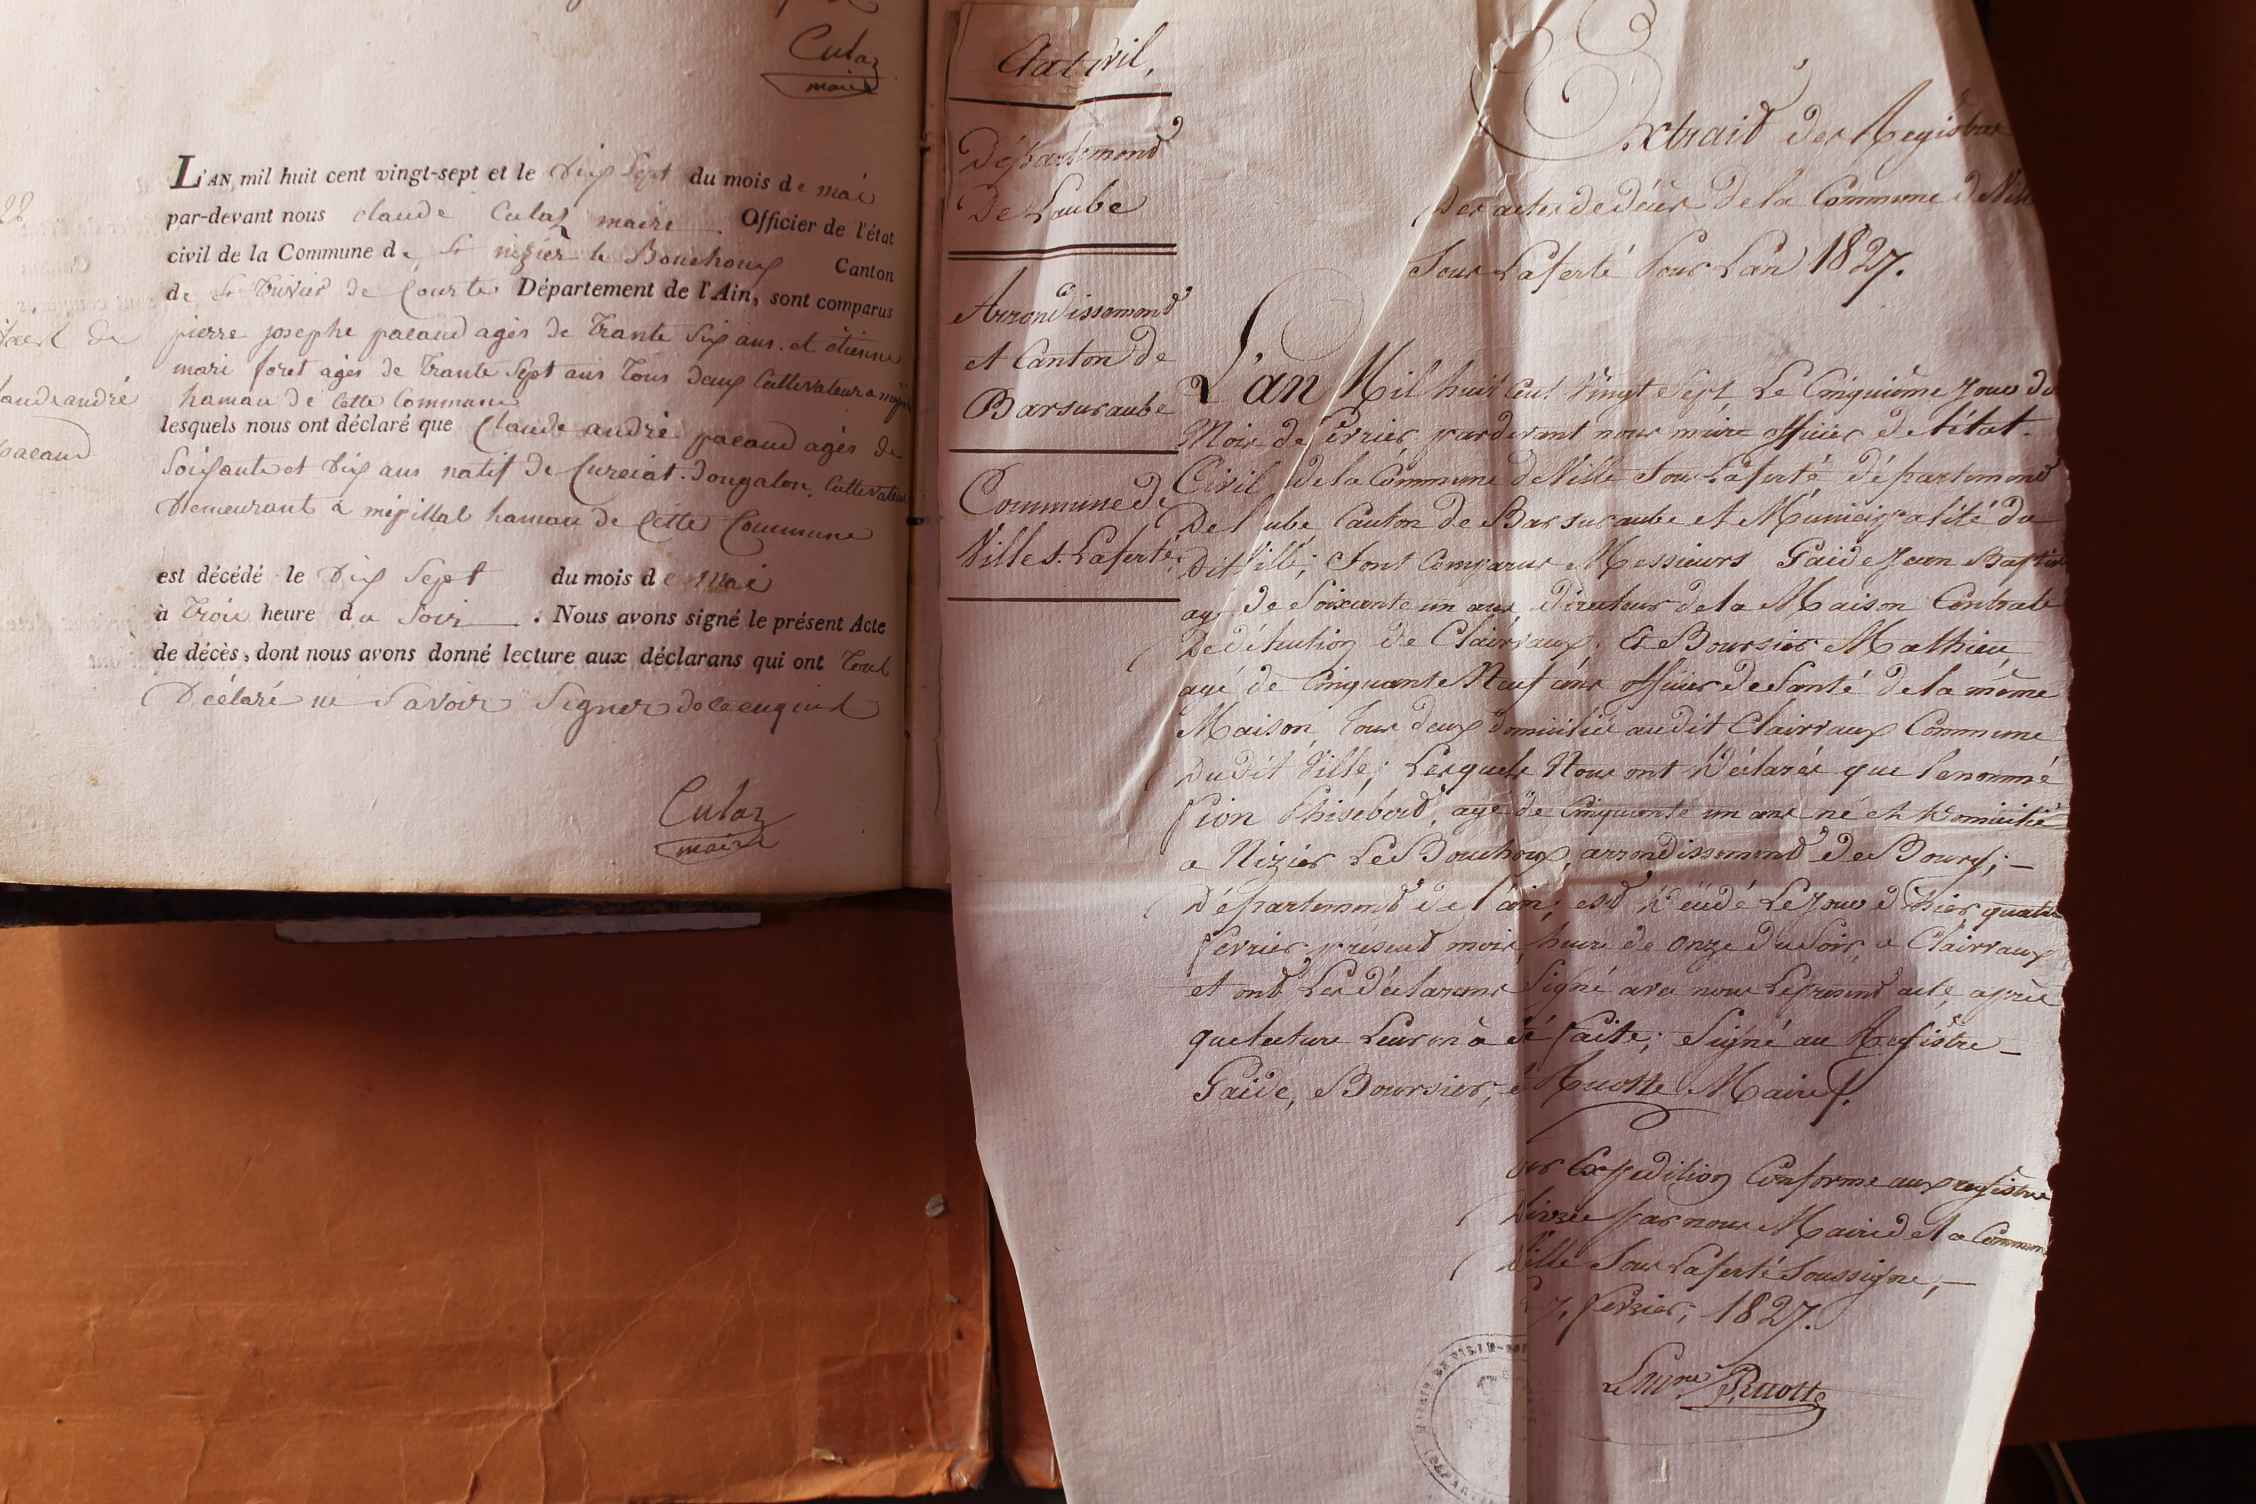 Culaz
maire
L'AN mil huit cent vingt-sept et le Dix Sept du mois de mai
par-devant nous claude Culaz maire Officier de l'état
civil de la Commune de St nizier le Bouchoux Canton
de St Trivier de Courte Département de l'Ain, sont comparus
pierre josephe pacaud agés de Trante Six ans. et étienne
mari foret agés de Trante Sept ans Tous deux Cultivateur a
hamau de Cette Commune
lesquels nous ont déclaré que Claude andré pacaud agés de
Soixante et Dix ans natif de Curciat-dongalon, Cultivateur
Demeurant a mépillat hamau de Cette Commune
est décédé le Dix Sept du mois de mai
à Trois heure du Soir. Nous avons signé le présent Acte
de décès, dont nous avons donné lecture aux déclarans qui ont Tout
Décélaré ne Savoir Signer de ce enquird
Culaz
maire
28
de
andré
pacaud
Etat Civil,
Département
De Laube
Arrondissement
et Canton de
Barsuraube
Commune de
Ville s. Laferté
Extrait des Registres
Des actes de décès de la Commune de Ville
Sous Laferté Pour L'an 1827.
L'an Mil huit Cent Vingt Sept Le Cinquième Jour du
Mois de Février, pardevant nous maire officier de l'état
Civil de la Commune de Ville Sous Laferté, département
De l'aube Canton de Barsuraube et Municipalité du
Dit Ville; Sont Comparus Messieurs Gaide Jean Baptiste
agé de Soixante un ans Directeur de la Maison Centrale
De détention de Clairvaux, Et Boursier Mathieu,
agé de Cinquante Neuf ans officier de Santé de la même
Maison, tous deux domicilié audit Clairvaux Commune
Dudit Ville; Lesquels Nous ont Déclarés que lenommé
Pion Phisebert, agé de Cinquante un ans né et Domicilié
a Nizier Le Bouchoux arrondissement de Bourg; —
Département de l'ain; est Décédé Le Jour d'hier quatre
février présent mois, heure de onze du Soir, a Clairvaux
et ont Les déclarans Signé avec nous Le present acte, après
que lecture Leur en à été faite; Signé au Registre —
Gaide, Boursier, et Ruotte Maire.
Expedition Conforme aux registre
Délivrée par nous Maire de la Commune
Ville Sous Laferté Soussigné, —
7. fevrier, 1827.
Le Mre Ruotte